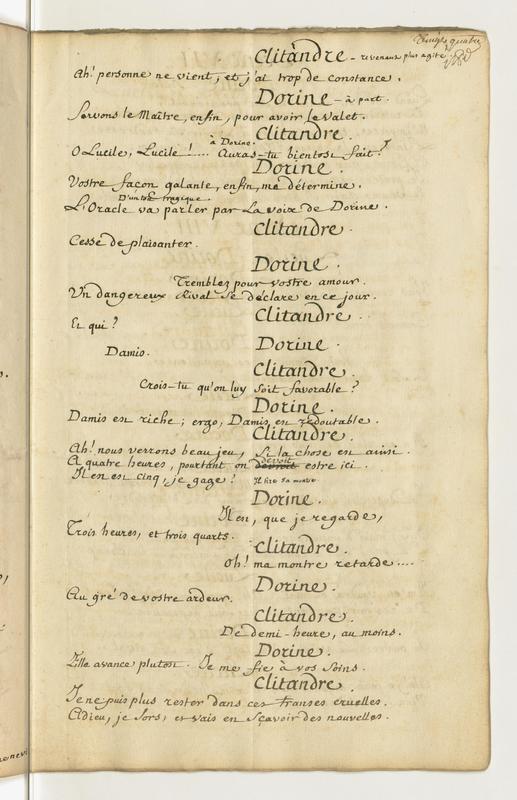 Vingt quatre
Clitandre - revenant plus agité.
Ah! personne ne vient, et j'ai trop de constance.
Dorine - à part.
Servons le Maître, enfin, pour avoir le Valet.
Clitandre.
à Dorine.
O Lucile, Lucile!.... Auras-tu bientost fait?
Dorine.
Vostre façon galante, enfin, me détermine.
D'un ton tragique.
L'Oracle va parler par La voix de Dorine.
Clitandre.
Cesse de plaisanter.
Dorine.
Tremblez pour vostre amour.
Un dangereux Rival se déclare en ce jour.
Clitandre.
Et qui?
Dorine.
Damis.
Clitandre.
Crois-tu qu'on luy soit favorable?
Dorine.
Damis est riche; ergo, Damis est redoutable.
Clitandre.
Ah! nous verrons beau jeu, si la chose est ainsi.
devoit
A quatre heures, pourtant on devroit estre ici.
Il en est cinq, je gage! Il tire sa montre
Dorine.
Il est, que je regarde,
Trois heures, et trois quarts.
Clitandre.
Oh! ma montre retarde....
Dorine.
Au gré de vostre ardeur.
Clitandre.
De demi-heure, au moins.
Dorine.
Elle avance plutost. Je me fie à vos soins.
Clitandre.
Je ne puis plus rester dans ces transes cruelles.
Adieu, je sors, et vais en sçavoir des nouvelles.